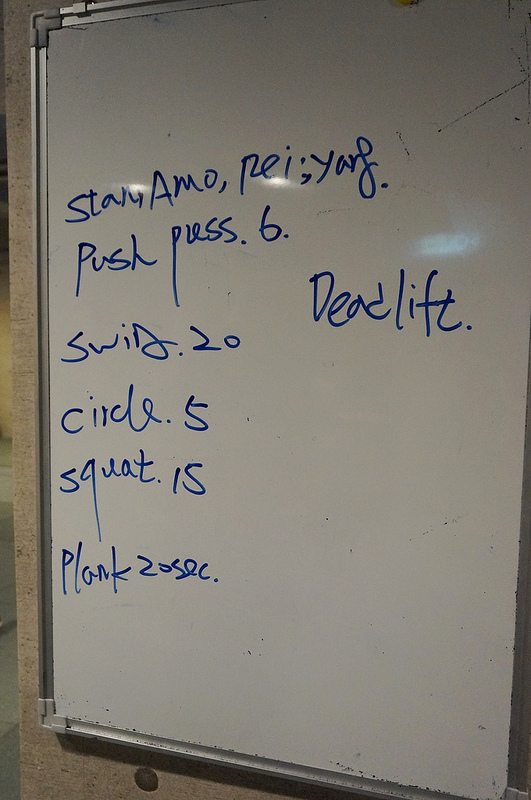 stan, Amo, pei; yang.
Push press. 6.
Deadlift.
swing. 20
circle. 5
squat. 15
Plank 20sec.